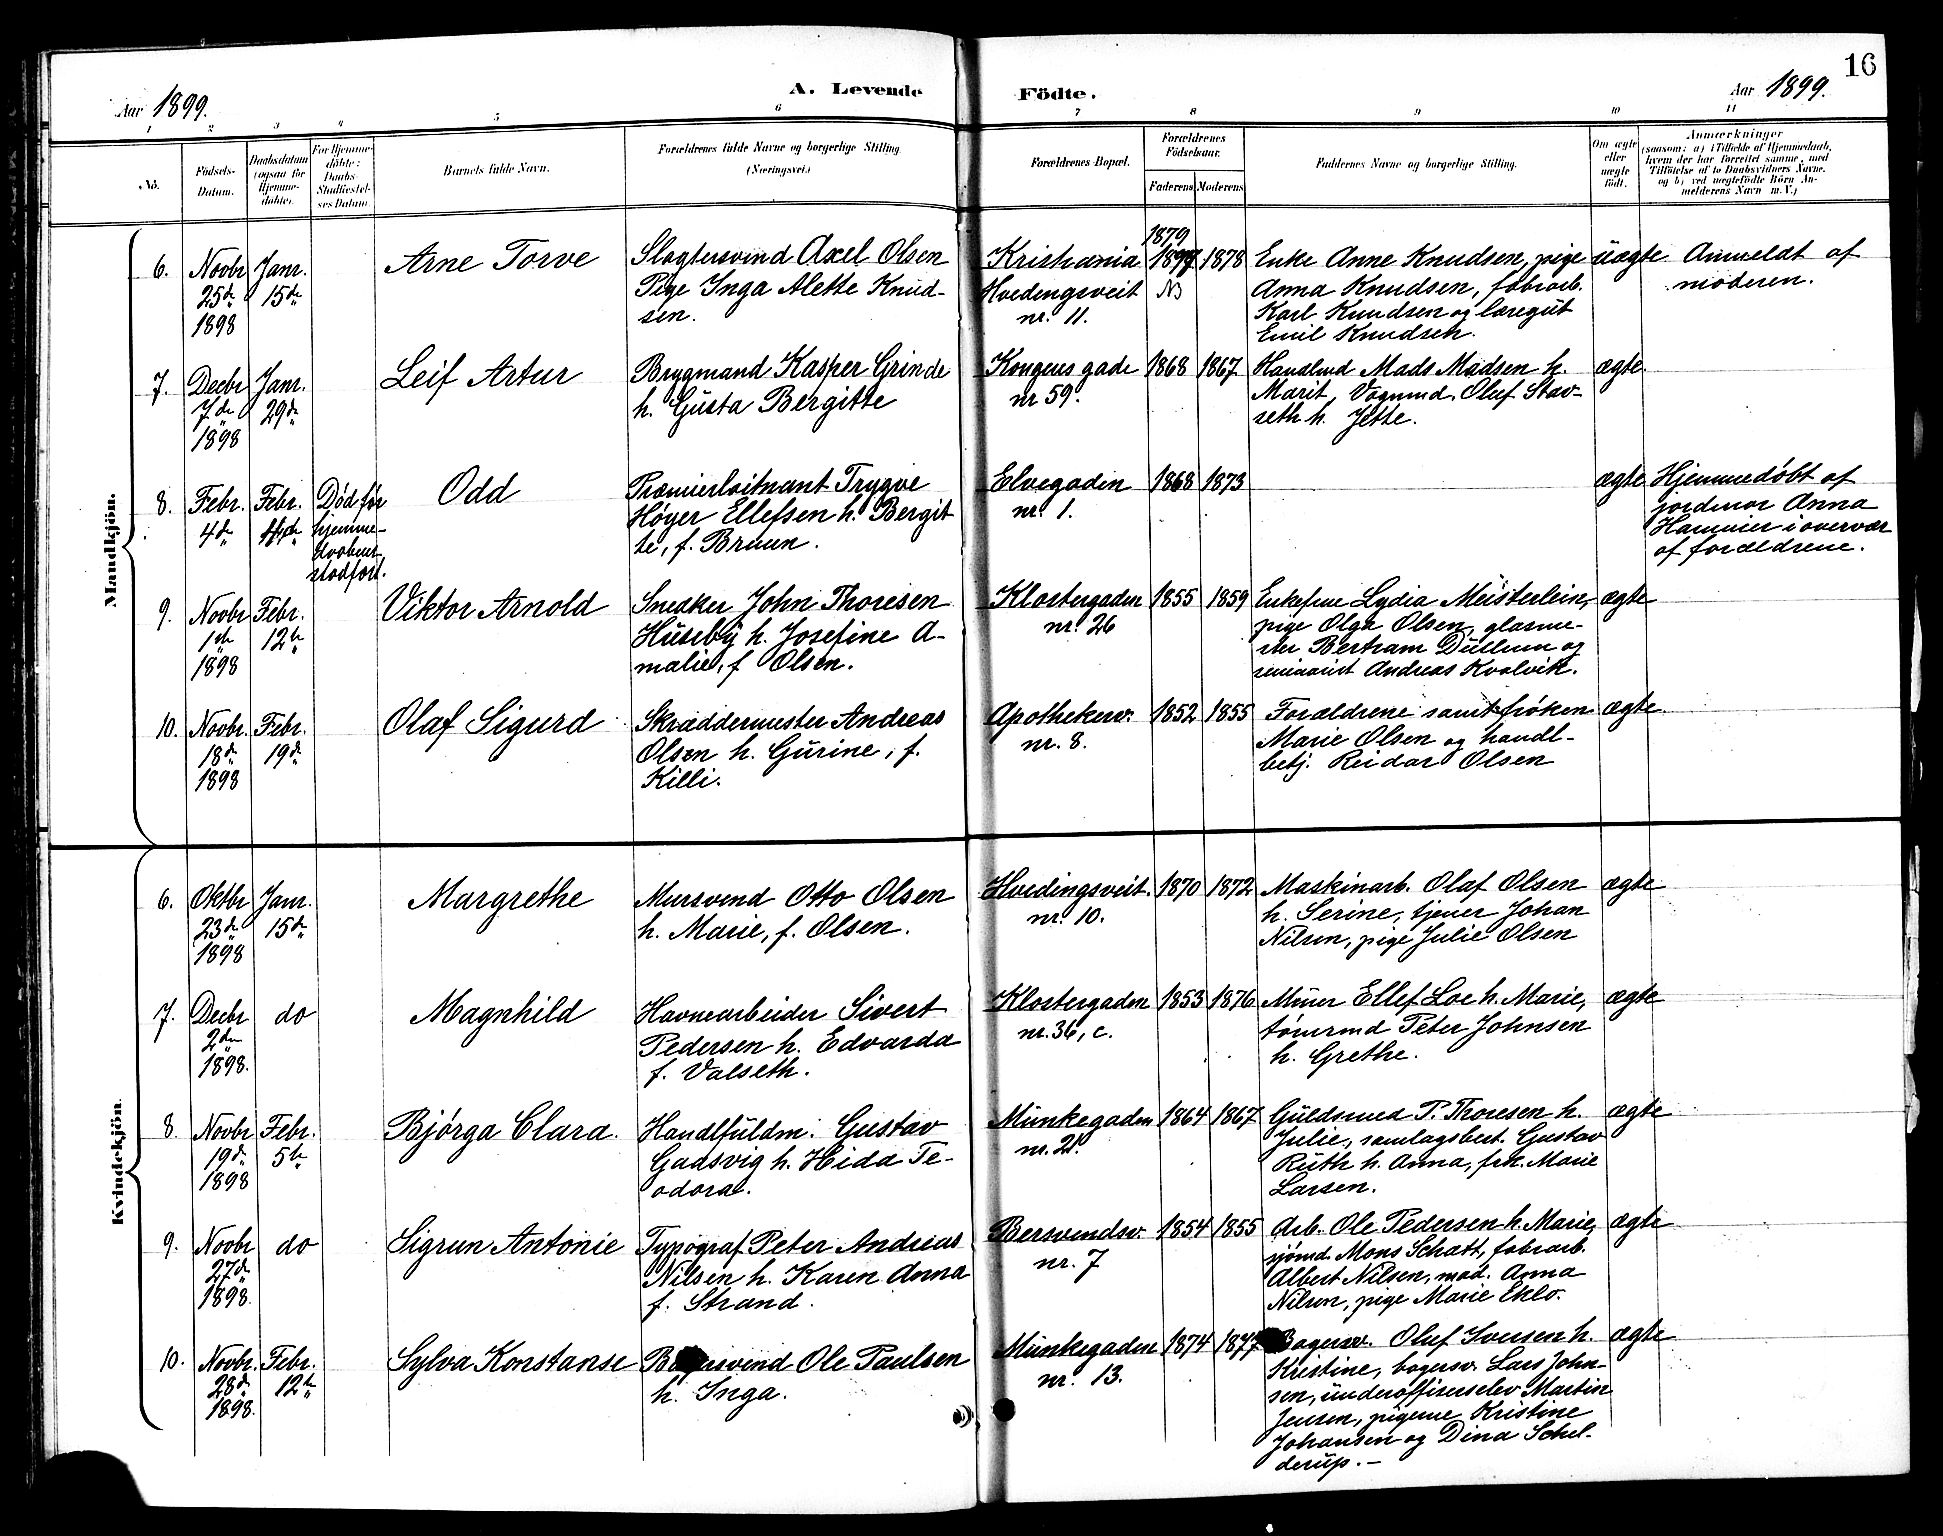 16
A. Levende Födte.
Aar 1899.
Aar 1899.
1 2 3 4 5 6 7 8 9 10 11
No.
Födsels-
Datum.
Daabsdatum
(ogsaa for
Hjemme-
döbte).
For Hjemme-
döbte:
Daabs-
Stadfæstel-
ses Datum
Barnets fulde Navn.
Forældrenes fulde Navne og borgerlige Stilling
(Næringsvei.)
Forældrenes Bopæl.
Forældrenes
Födselsaar.
Faderens
Moderens
Faddernes Navne og borgerlige Stilling.
Om ægte
eller
uægte
födt.
Anmærkninger
(saasom: a) i Tilfælde af Hjemmedaab,
hvem der har forrettet samme, med
Tilföielse af to Daabsvidners Navne.
og b) ved uægtefödte Börn An-
melderens Navn m. V.)
Mandkjön.
6.
Novbr
25de
1898
Janr.
15de
Arne Torve
Slagtersvend Axel Olsen
Pige Inga Alette Knud-
sen.
Kristiania
Hvedingsveit
nr. 11.
1879
NB
1878
Enke Anne Knudsen, pige
Anna Knudsen, fabrarb.
Karl Knudsen og læregut
Emil Knudsen.
uægte
Anmeldt af
moderen.
7.
Decbr
7de
1898
Janr.
29de
Leif Artur
Brygmand Kasper Grinde
h. Gusta Bergitte
Kongens gade
nr 59.
1868
1867
Handlmd Mads Madsen h.
Marit, Vognmd. Oluf Stav-
seth h. Jette.
ægte
8.
Febr.
4de
Febr.
Død før
hjemme-
daaben
stadfæst.
Odd
Premierløitnant Trygve
Høyer Ellefsen h. Bergit
te, f. Bruun.
Elvegaden
nr. 1.
1868
1873
ægte
Hjemmedøbt af
jordmor Anna
Hammer i overvær
af forældrene.
9.
Novbr
1ste
1898
Febr.
12te
Viktor Arnold
Snedker John Thoresen
Huseby h. Josefine A-
malie, f Olsen.
Klostergaden
nr. 26
1855
1859
Enkefrue Lydia Meisterlein,
pige Olga Olsen, glasme-
ster Bertram Dullum og
seminarist Andreas Kvalvik.
ægte
10.
Novbr.
18de
1898
Febr.
19de
Olaf Sigurd
Skræddermester Andreas
Olsen h. Gurine, f.
Killi.
Apothekerv.
nr. 8.
1852
1855
Forældrene samt frøken
Marie Olsen og handl-
betj. Reidar Olsen
ægte
Kvindekjön.
6.
Oktbr
23de
1898
Janr.
15de
Margrethe
Mursvend Otto Olsen
h. Marie, f. Olsen.
Hvedingsveit.
nr. 10.
1870
1872
Maskinarb. Olaf Olsen
h. Serine, tjener Johan
Nilsen, pige Julie Olsen
ægte
7.
Decbr
2den
1898.
do
Magnhild
Havnearbeider Sivert
Pedersen h. Edvarda
f. Valseth.
Klostergaden
nr. 36, c.
1853
1876
Murer Ellef Loe h. Marie,
tømrmd Peter Johnsen
h. Grethe.
ægte
8.
Novbr
19de
1898
Febr.
5te
Bjørga Clara.
Handlfuldm. Gustav
Gadsvig h. Hida Te-
odora.
Munkegaden
nr. 21.
1864
1867
Guldsmed P. Thoresen h.
Julie, samlagsbest. Gustav
Ruth h. Anna, frk. Marie
Larsen.
ægte
9.
Novbr
27de
1898.
do
Sigrun Antonie
Typograf Peter Andreas
Nilsen h. Karen Anna
f. Strand.
Bersvendsv.
nr. 7
1854
1855
Arb. Ole Pedersen h. Marie,
sjømd. Mons Schatt, fabrarb.
Albert Nilsen, mad. Anna
Nilsen, pige Marie Eklo.
ægte
10.
Novbr.
28de
1898.
Febr.
12te
Sylva Konstanse
Bagersvend Ole Paulsen
h. Inga.
Munkegaden
nr. 13.
1874
1877
Bagersv. Oluf Iversen h.
Kristine, bagersv. Lars John-
sen, underoffiserselev Martin
Jensen, pigerne Kristine
Johansen og Dina Schel-
derup. —
ægte